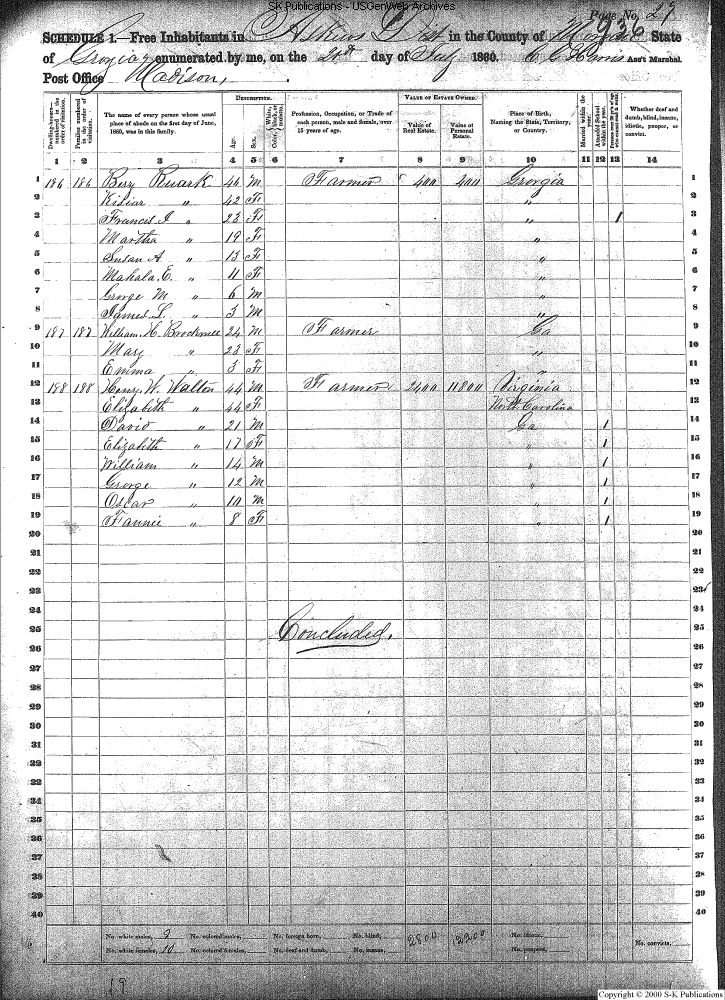 SK Publications - USGenWeb Archives
Page No. 27
936
SCHEDULE 1.—Free Inhabitants in Askins Dist in the County of State
of Georgia enumerated by me, on the day of July 1860. Harris Ass't Marshal.
Post Office Madison,
Dwelling-houses—numbered in the order of visitation.
Families numbered in the order of visitation.
The name of every person whose usual place of abode on the first day of June, 1860, was in this family.
DESCRIPTION.
Age.
Sex.
Color, White, black, or mulatto.
Profession, Occupation, or Trade of each person, male and female, over 15 years of age.
VALUE OF ESTATE OWNED.
Value of Real Estate.
Value of Personal Estate.
Place of Birth, Naming the State, Territory, or Country.
Married within the year.
Attended School within the year.
Whether deaf and dumb, blind, insane, idiotic, pauper, or convict.
1 2 3 4 5 6 7 8 9 10 11 12 13 14
1 186 186 46 M Farmer 400 400 Georgia 1
2 " 42 F " 2
3 Francis J " 23 F " 1 3
4 Martha " 19 F " 4
5 Susan A " 13 F " 5
6 Mahala E. " 11 F " 6
7 George M " 6 M " 7
8 James L. " 3 M " 8
9 187 187 William H. 24 M Farmer Ga 9
10 Mary " 23 F " 10
11 Emma " 3 F " 11
12 188 188 Henry W. Walton 44 M Farmer 2400 11800 Virginia 12
13 Elizabeth " 44 F North Carolina 13
14 David " 21 M Ga 1 14
15 Elizabeth " 17 F " 1 15
16 William " 14 M " 1 16
17 George " 12 M " 1 17
18 Oscar " 10 M " 1 18
19 Fannie " 8 F " 1 19
20 20
21 21
22 22
23 23
24 24
25 Concluded. 25
26 26
27 27
28 28
29 29
30 30
31 31
32 32
33 33
34 34
35 35
36 36
37 37
38 38
39 39
40 40
No. white males, 9 No. colored males, No. foreign born, No. blind, 2800 12200 No. idiotic, No. convicts,
No. white females, 10 No. colored females, No. deaf and dumb, No. insane, No. paupers,
19
Copyright © 2000 S-K Publications